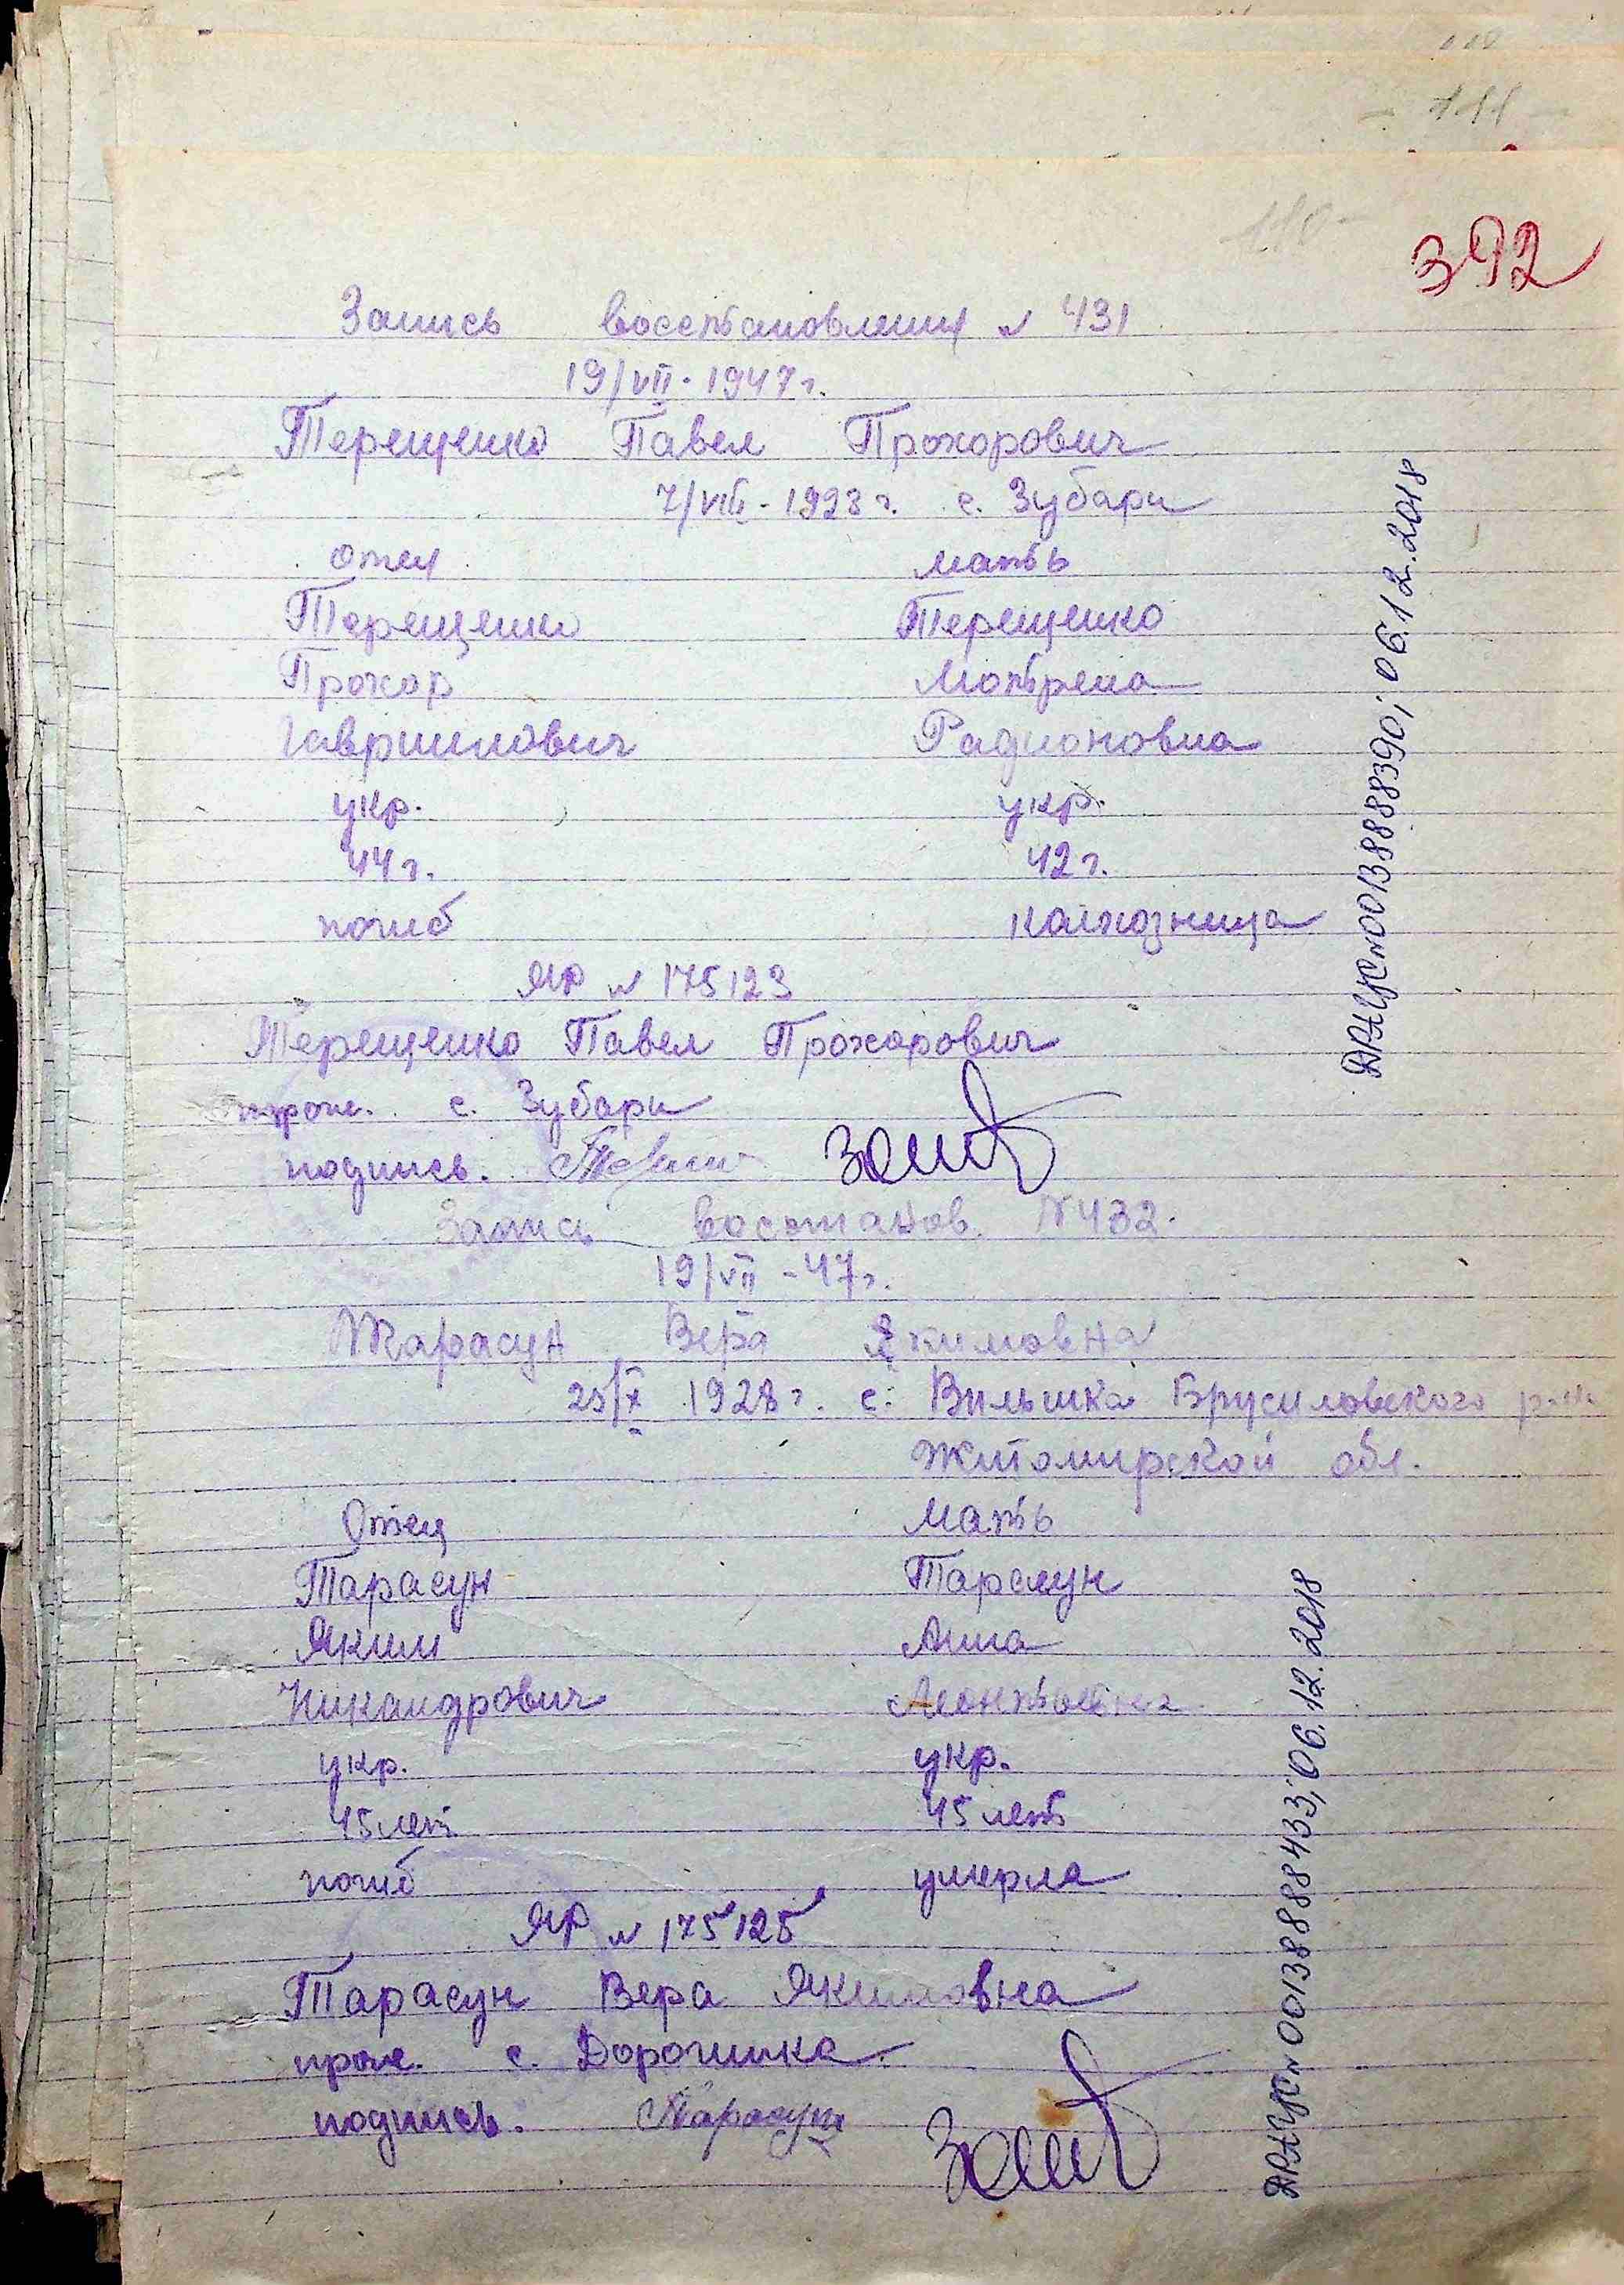 111
110
392
Запись восстановления № 431
19/VII. 1947 г.
Терещенко Павел Прохорович
7/VIII - 1928 г. с. Зубари
отец мать
Терещенко Терещенко
Прохор Мотрена
Гаврилович Радионовна
укр. укр.
44 г. 42 г.
погиб колхозница
ЯР № 175123
Терещенко Павел Прохорович
прож. с. Зубари
подпись.
Запись восстанов. № 432.
19/VII - 47 г.
Тарасун Вера Якимовна
25/X 1928 г. с. Вильшка Брусиловского р-н
Житомирской обл.
Отец Мать
Тарасун Тарасун
Яким Анна
Никандрович Леонтьевна
укр. укр.
45 лет 45 лет
погиб умерла
ЯР № 175125
Тарасун Вера Якимовна
прож. с. Дорогинка.
подпись. Тарасун
ДРАЦС № 00138888390; 06.12.2018
ДРАЦС № 00138888433; 06.12.2018